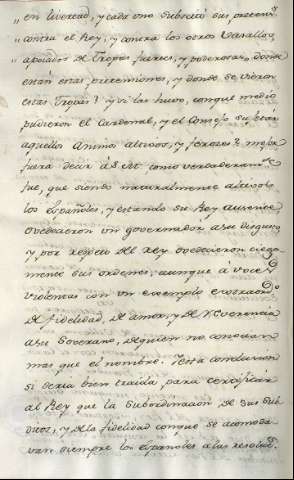 „ en livertad, y cada uno dubreiâ sus pretens.s
„ contra el Rey, y contra los otros Vasallos,
„ apoiados de Tropas fuertes, y poderosas, donde
estan estas pretensiones, y donde se vieron
estas Tropas? y si las huvo, conque medio
pudieron el Cardenal, y el Consejo sugetar
aquellos Animos altivos, y ferozes? mejor
fuera decir á S. M. como verdaderam.te
fue, que siendo naturalmente altivos
los Españoles, y estando su Rey ausente
ovedecieron un governador a su disgusto
y por respeto del Rey ovedecieron ciega
mente sus ordenes, aunque á voces
violentas con un exemplo extraord.o
de fidelidad, de amor, y de Reverencia
a su Soverano, de quien no conocian
mas que el nombre. Esta conclusion
si seria bien traida para certificar
al Rey que la subordinacion de sus sub
ditos, y de la fidelidad conque se acomoda
van siempre los Españoles a las resoluc.s